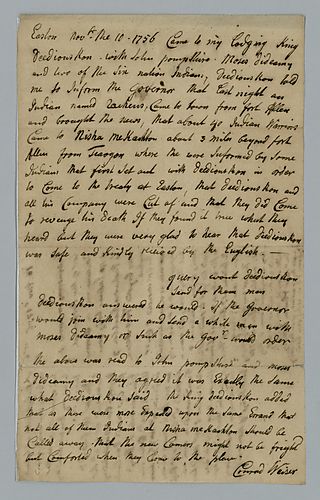 Easton Novbr the 10 - 1756 Came to my lodging King
Deedionskon - with John pompshire - Moses Dideamy
and two of the Six nation Indians, Deedionskon told
me to Inform the Governor that last night an
Indian named Zacheus, Came to town from fort Allen
and brought the news, that about 40 Indian Warriors
Came to Nisha meckachton about 3 miles beyond fort
Allen from Teaogon where the were Informed by Some
Indians that first Set out with Deedionskon in order
to Come to the treaty at Easton, that Deedionskon and
all his Company were Cut of and that they Did Come
to revenge his Death If they found it true what they
heard but they were very glad to hear that Deedionskon
was safe and kindly received by the English. —
query wont Deedionskon
Send for them men
Deedionskon answered he would: if the Governor
would join with him and send a white man with
moses Dideamy or Such as the Govr would order
the above was read to John pompshire and moses
Dideamy and they agreed it was Exactly the Same
what Deedionskon said the King Deedionskon added
that as there were more Expectd upon the Same Errand that
not all of them Indians at Nisha meckachton should be
Called away that the new Comers might not be fright
but Comforted when they Come to the place.
Conrad Weiser